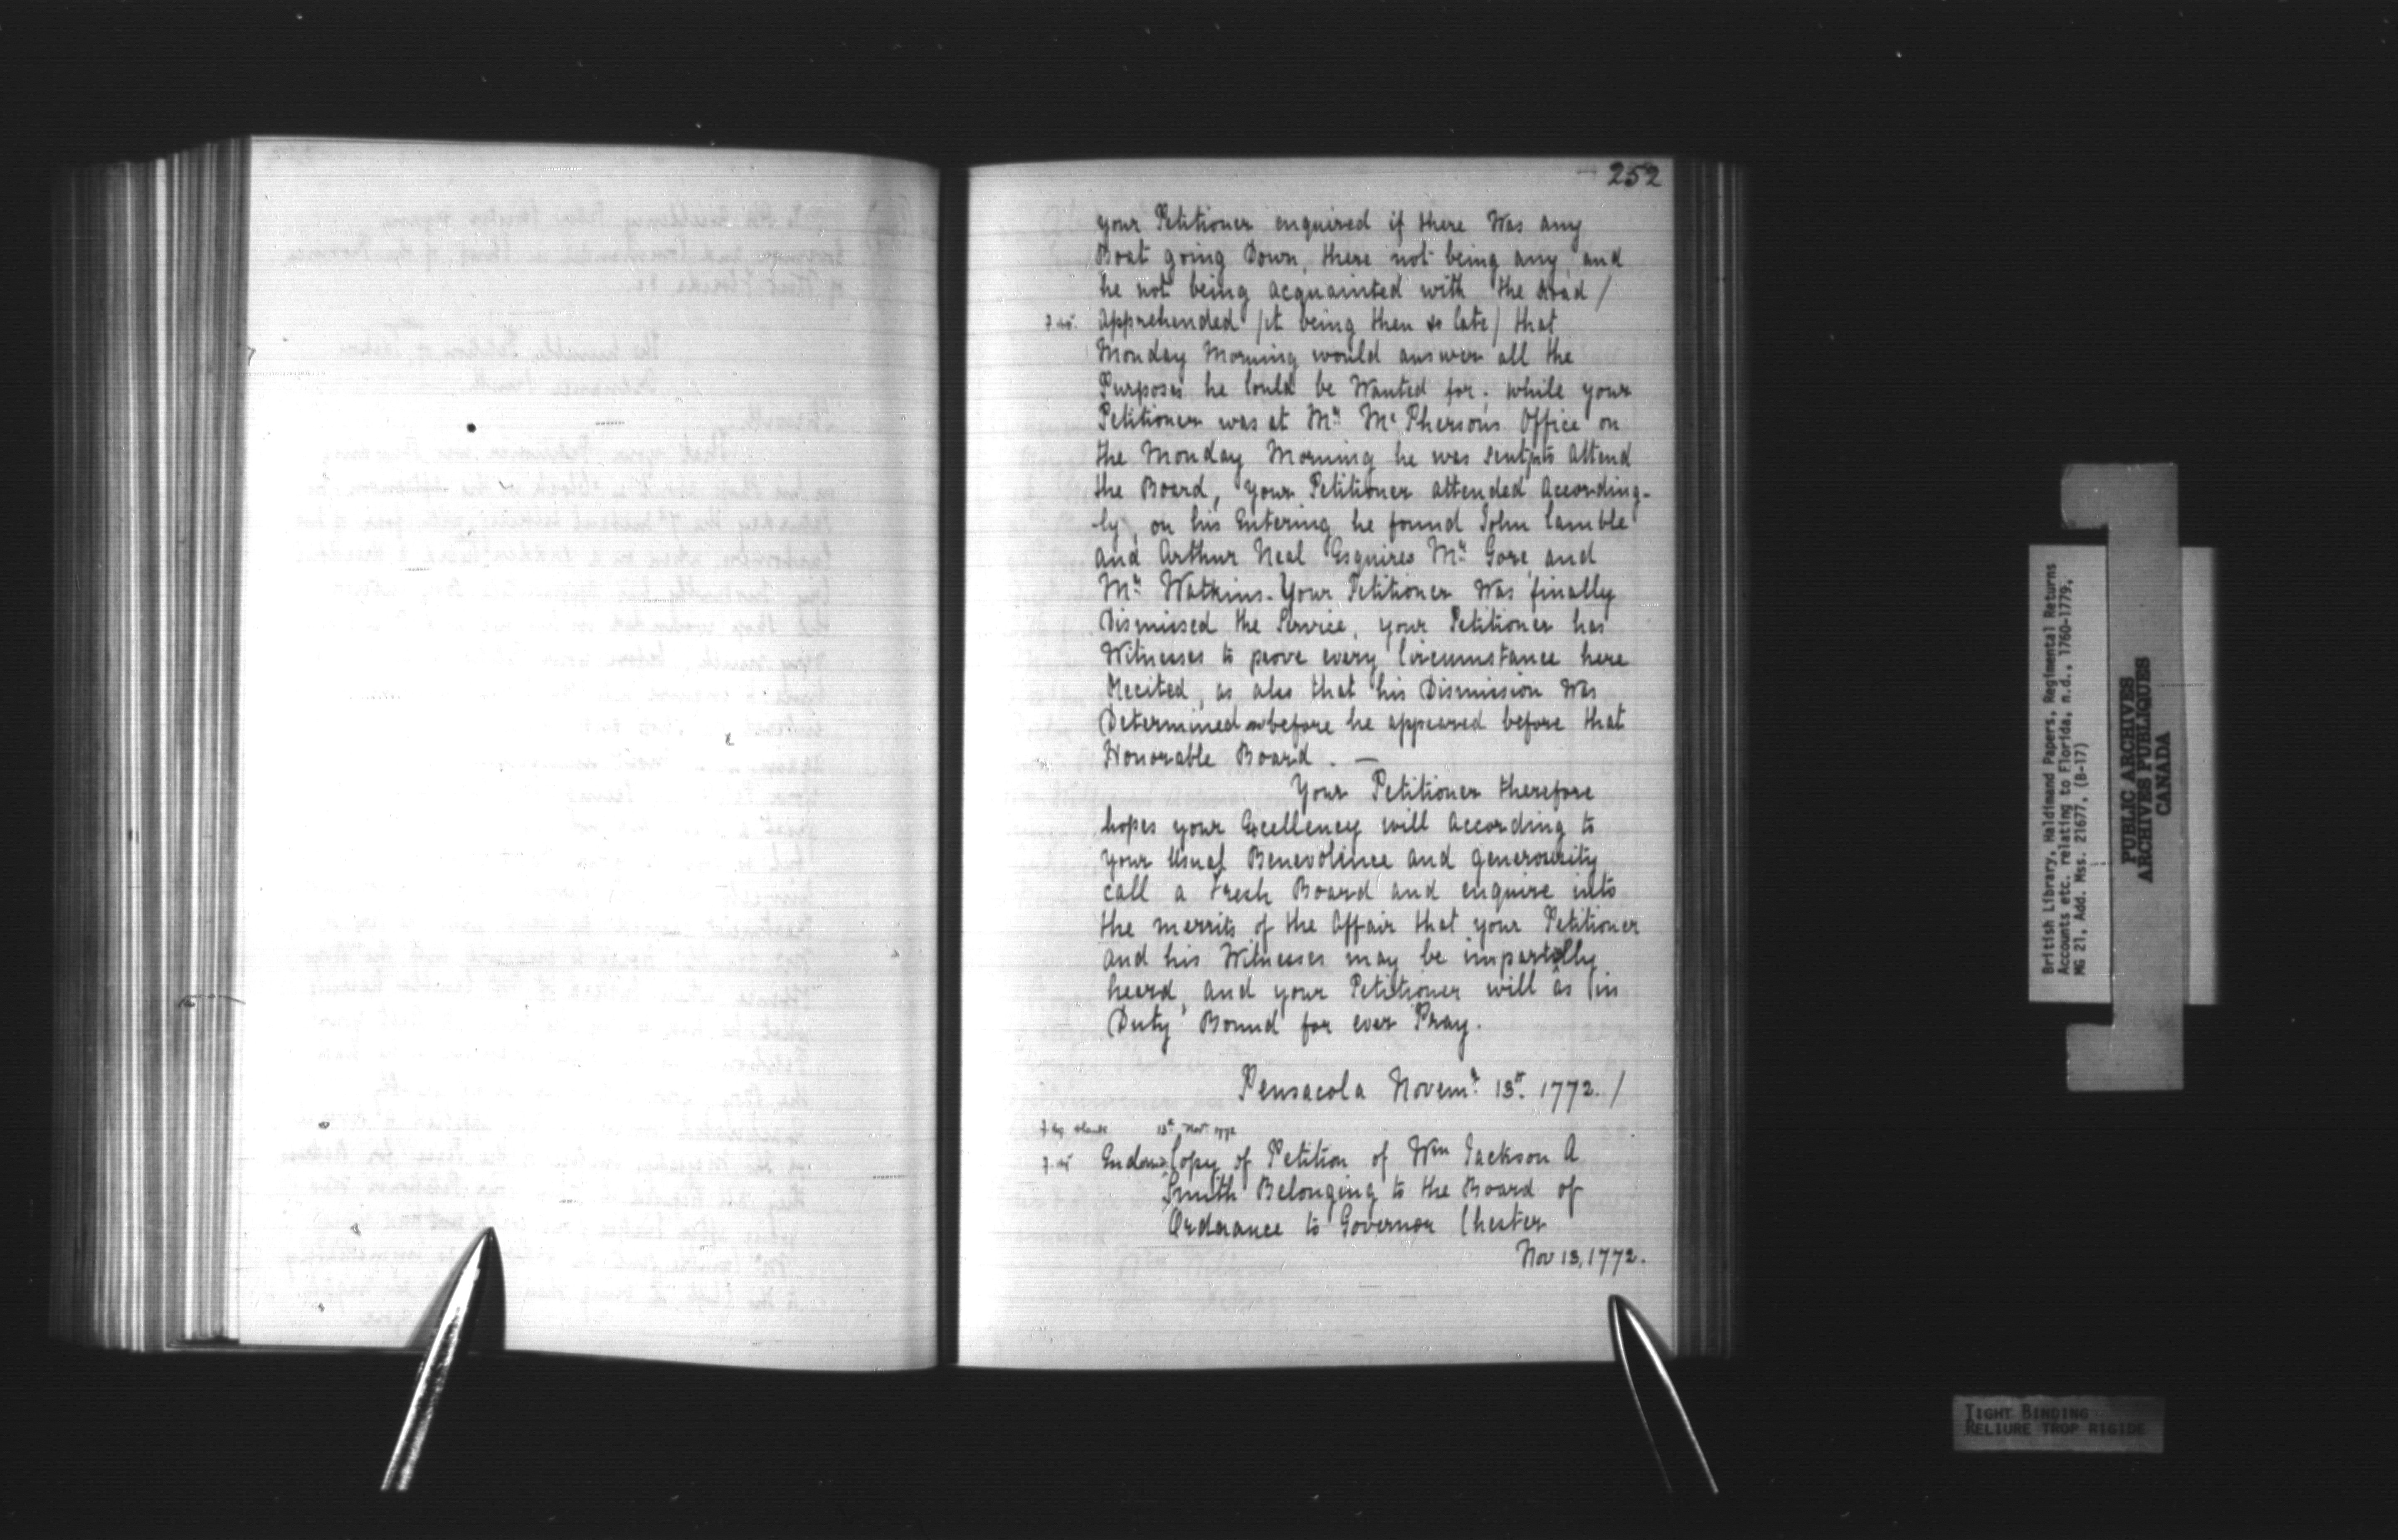 252
your Petitioner enquired if there Was any
Boat going Down, there not being any, and
he not being acquainted with the Road /
apprehended /it being then so late/ that
Monday Morning would answer all the
Purposes he Could be Wanted for; while your
Petitioner was at Mr. McPhersons Office on
the Monday Morning he was sent to attend
the Board, your Petitioner attended according-
-ly, on his Entering he found John Camble
and Arthur Neal Esquires Mr. Gore, and
Mr. Watkins. Your Petitioner Was finally
Dismissed the Service, your Petitioner has
Witnesses to prove every Circumstance here
Recited, as also that his Dismission Was
Determined on before he appeared before that
Honorable Board. —
Your Petitioner therefore
hopes your Excellency will according to
your Usual Benevolence and generousity
call a Fresh Board and enquire into
the merrits of the Affair that your Petitioner
and his Witnesses may be impartially
heard, and your Petitioner will as (in
Duty Bound for ever Pray.
Pensacola Novemr. 13th. 1772. /
13th Novr. 1772
Endorsed Copy of Petition of Wm Jackson A
Smith Belonging to the Board of
Ordnance to Governor Chester
Nov 13, 1772.
British Library, Haldimand Papers, Regimental Returns
Accounts etc. relating to Florida, n.d., 1760-1779,
MG 21, Add. Mss. 21677, (B-17)
PUBLIC ARCHIVES
ARCHIVES PUBLIQUES
CANADA
TIGHT BINDING
RELIURE TROP RIGIDE